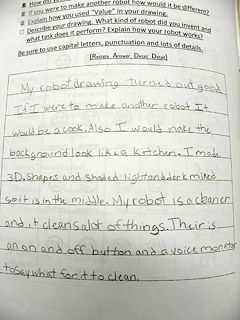 How did
If you were to make another robot how would it be different?
Explain how you used "Value" in your drawing.
Describe your drawing. What kind of robot did you invent and
what task does it perform? Explain how your robot works?
Be sure to use capital letters, punctuation and lots of details.
(Restate Answer Detail Detail)
My robot drawing turned out good
If I were to make another robot It
would be a cook. Also I would make the
background look like a kitchen. I made
3D. shapes and shaded light and dark mixed
so it is in the middle. My robot is a cleaner
and it cleans alot of things. Their is
an on and off button and a voice monator
to say what for it to clean.